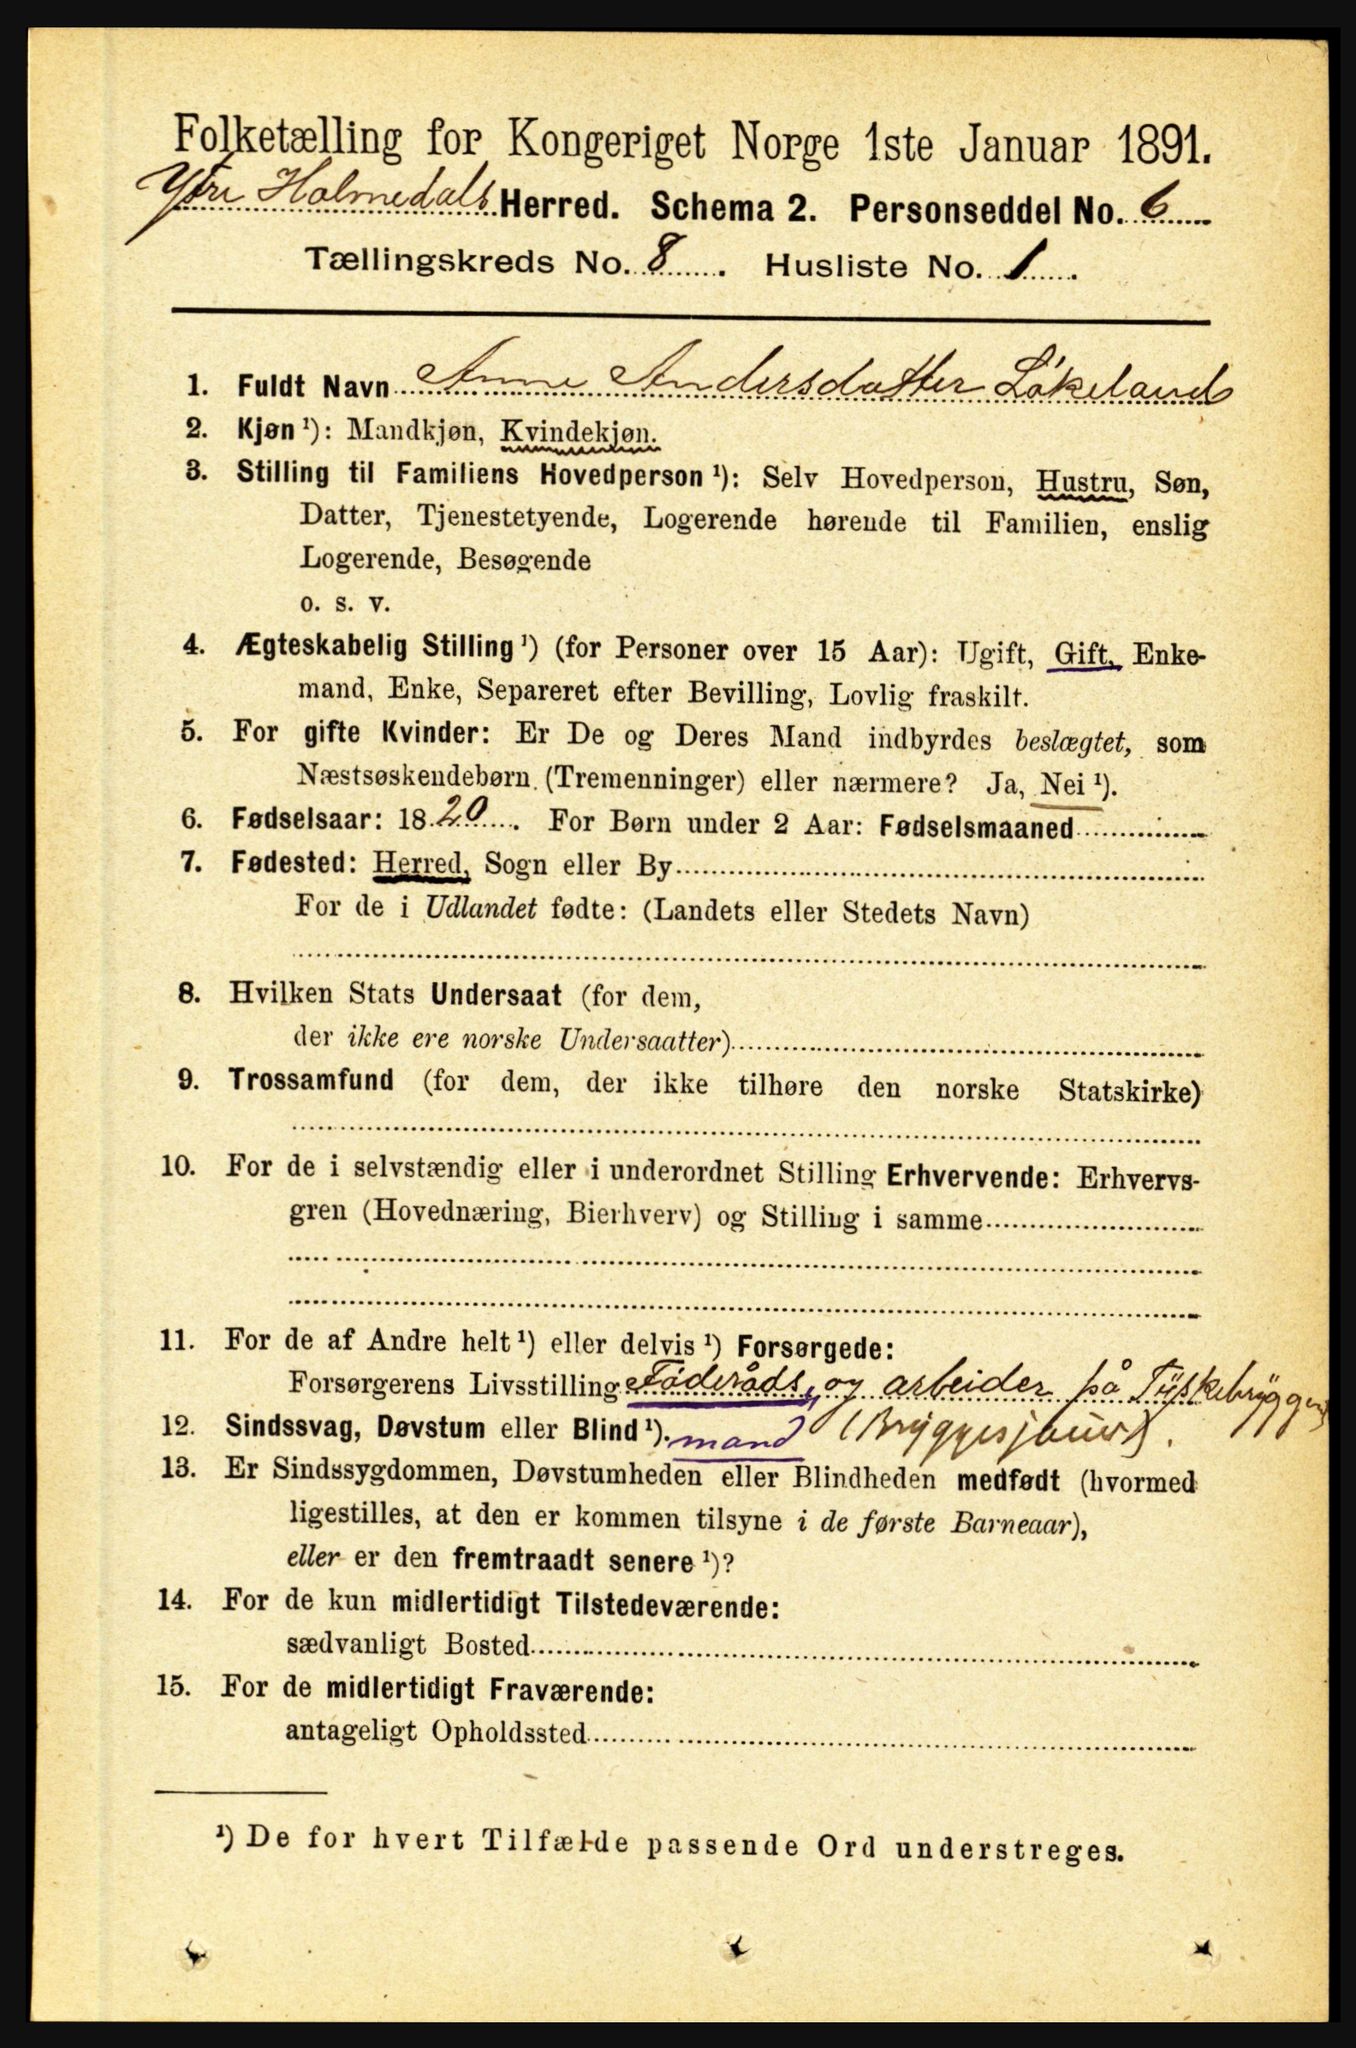 Folketælling for Kongeriget Norge 1ste Januar 1891.
Ytre Holmedals Herred. Schema 2. Personseddel No. 6
Tællingskreds No. 8. Husliste No. 1.
1. Fuldt Navn Anne Andersdatter Løkeland
2. Kjøn ¹): Mandkjøn, Kvindekjøn.
3. Stilling til Familiens Hovedperson ¹): Selv Hovedperson, Hustru, Søn,
Datter, Tjenestetyende, Logerende hørende til Familien, enslig
Logerende, Besøgende
o. s. v.
4. Ægteskabelig Stilling ¹) (for Personer over 15 Aar): Ugift, Gift, Enke-
mand, Enke, Separeret efter Bevilling, Lovlig fraskilt.
5. For gifte Kvinder: Er De og Deres Mand indbyrdes beslægtet, som
Næstsøskendebørn (Tremenninger) eller nærmere? Ja, Nei ¹).
6. Fødselsaar: 1820. For Børn under 2 Aar: Fødselsmaaned
7. Fødested: Herred, Sogn eller By
For de i Udlandet fødte: (Landets eller Stedets Navn)
8. Hvilken Stats Undersaat (for dem,
der ikke ere norske Undersaatter)
9. Trossamfund (for dem, der ikke tilhøre den norske Statskirke)
10. For de i selvstændig eller i underordnet Stilling Erhvervende: Erhvervs-
gren (Hovednæring, Bierhverv) og Stilling i samme
11. For de af Andre helt ¹) eller delvis ¹) Forsørgede:
Forsørgerens Livsstilling Føderåds, og arbeider på Tyskebryggen
12. Sindssvag, Døvstum eller Blind ¹). mand (Bryggesjauer).
13. Er Sindssygdommen, Døvstumheden eller Blindheden medfødt (hvormed
ligestilles, at den er kommen tilsyne i de første Barneaar),
eller er den fremtraadt senere ¹)?
14. For de kun midlertidigt Tilstedeværende:
sædvanligt Bosted
15. For de midlertidigt Fraværende:
antageligt Opholdssted
¹) De for hvert Tilfælde passende Ord understreges.